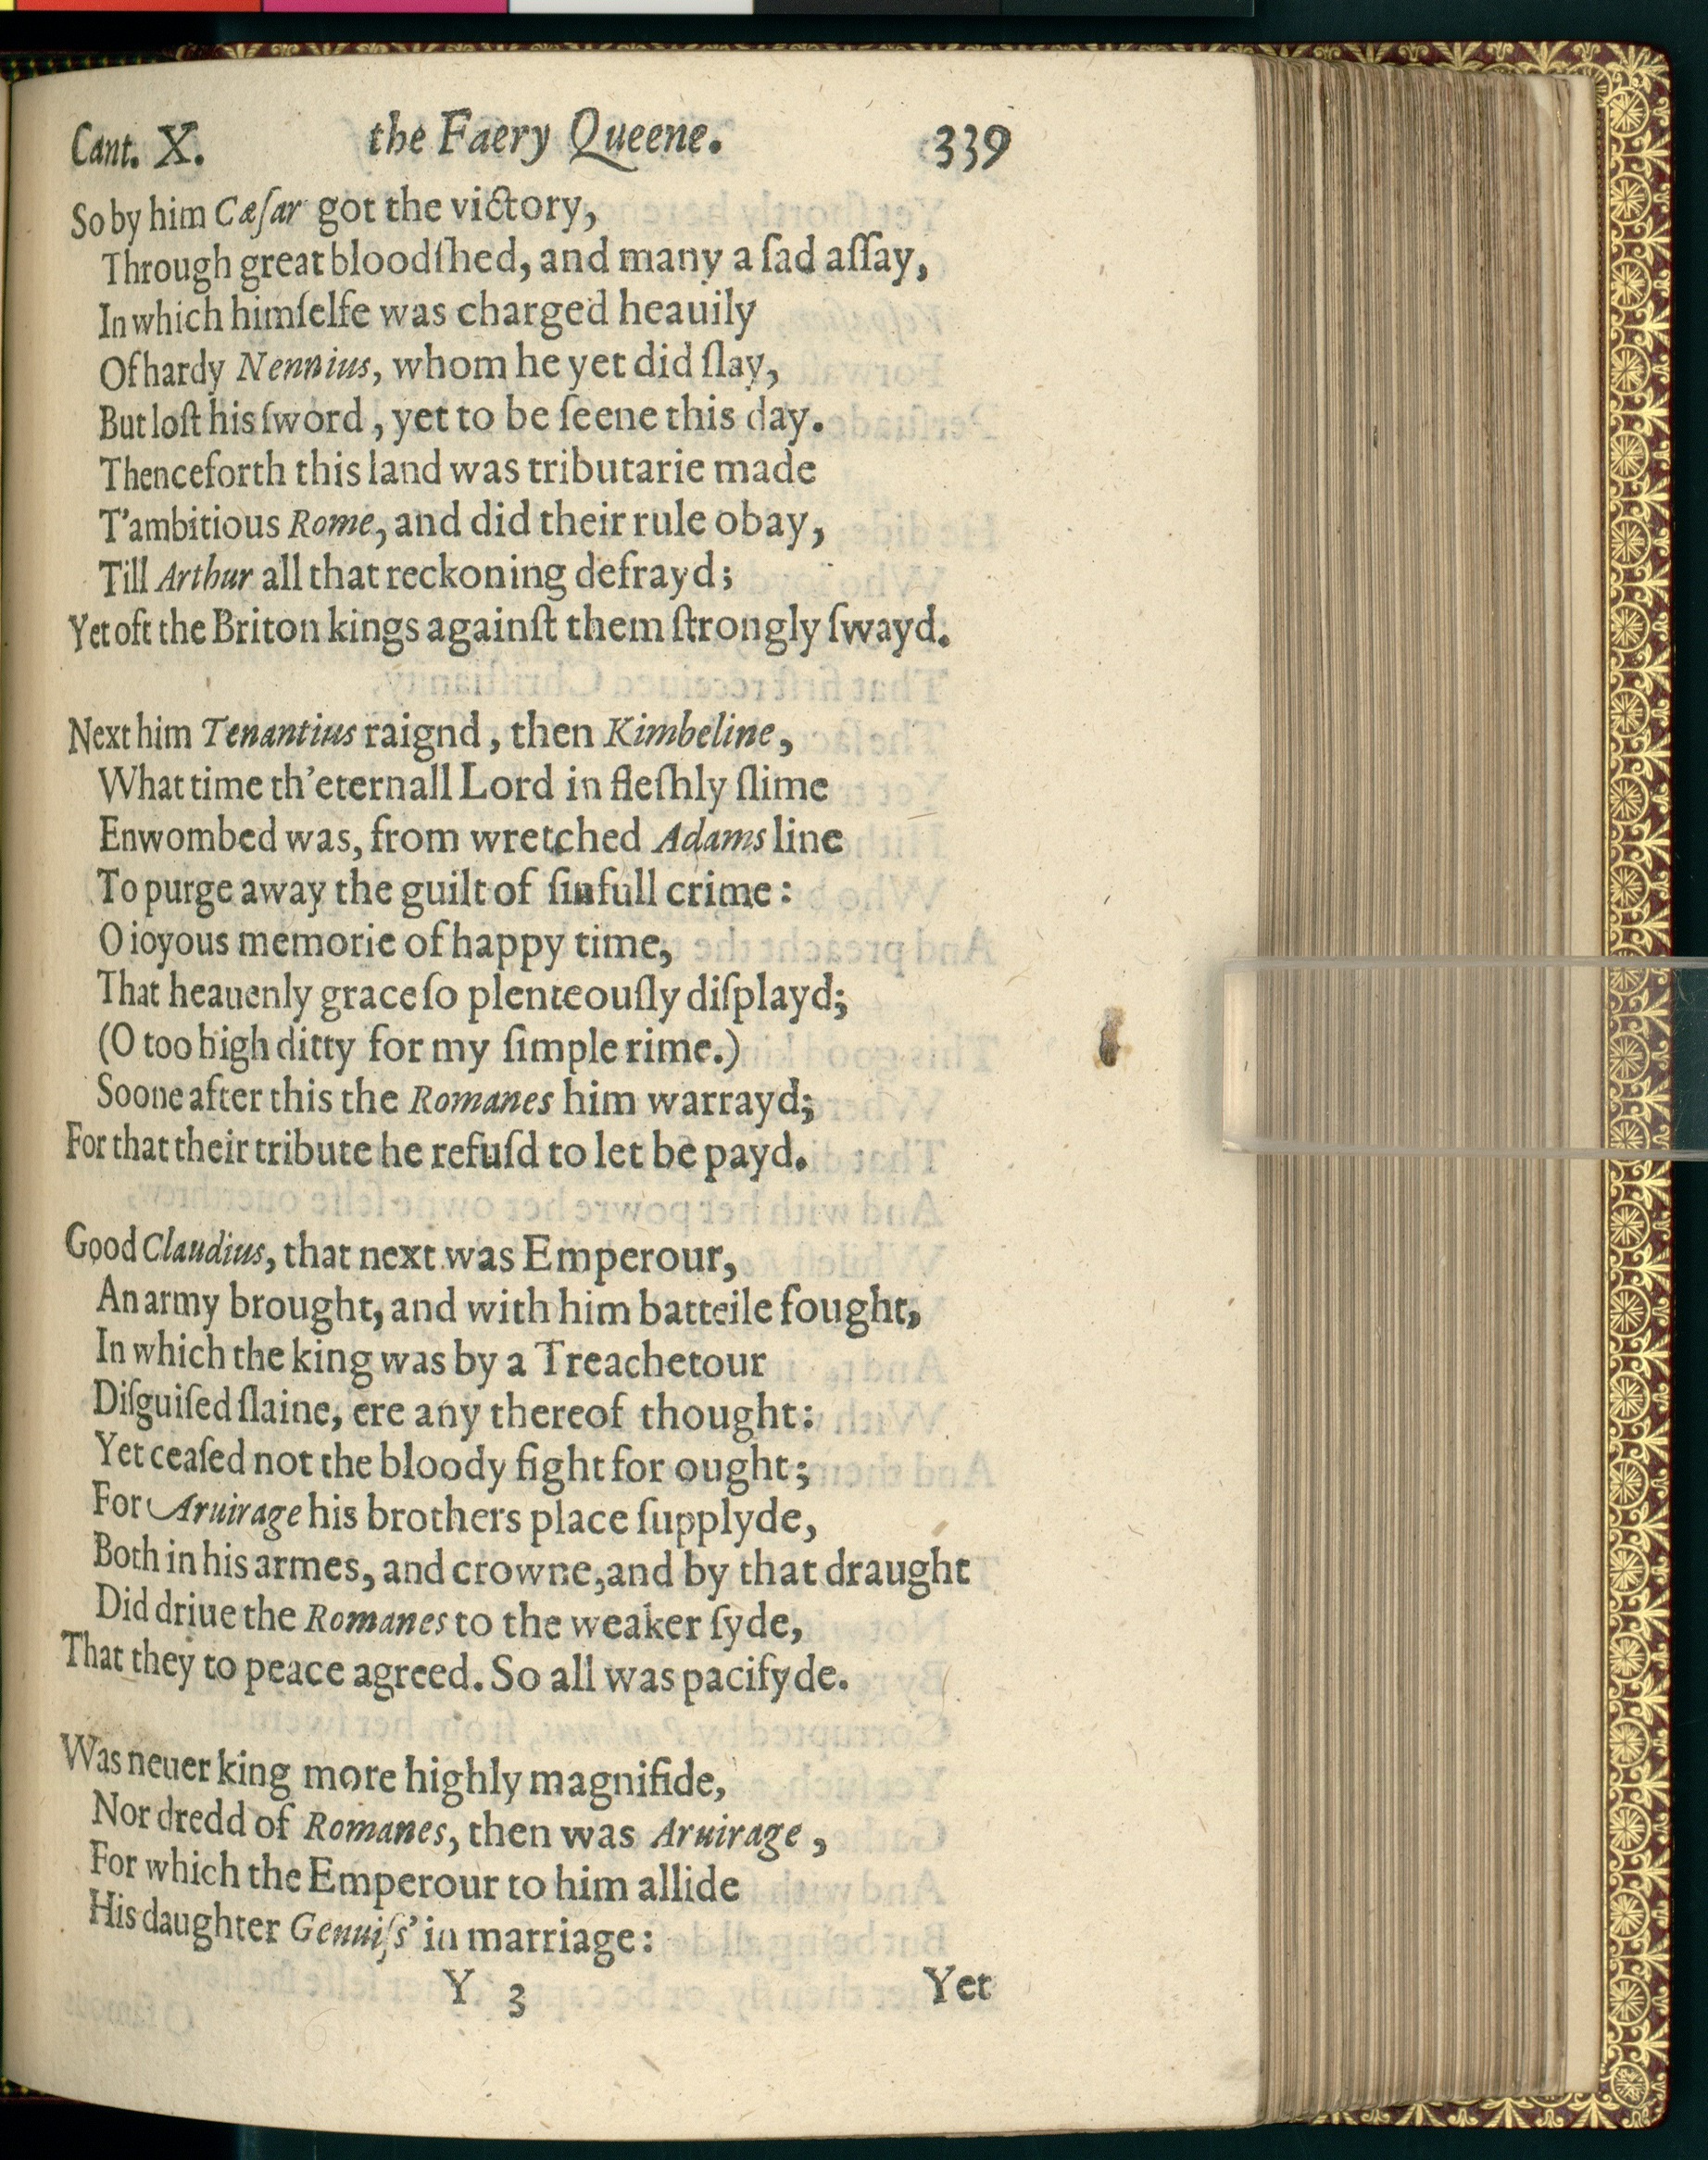 Cant. X. the Faery Queene. 339
So by him Cæſar got the victory,
Through great bloodſhed, and many a ſad aſſay,
In which himſelfe was charged heauily
Of hardy Nennius, whom he yet did ſlay,
But loſt his ſword, yet to be ſeene this day.
Thenceforth this land was tributarie made
T'ambitious Rome, and did their rule obay,
Till Arthur all that reckoning defrayd;
Yet oft the Briton kings againſt them ſtrongly ſwayd.
Next him Tenantius raignd, then Kimbeline,
What time th'eternall Lord in fleſhly ſlime
Enwombed was, from wretched Adams line
To purge away the guilt of ſinfull crime:
O ioyous memorie of happy time,
That heauenly grace ſo plenteouſly diſplayd;
(O too high ditty for my ſimple rime.)
Soone after this the Romanes him warrayd;
For that their tribute he refuſd to let be payd.
Good Claudius, that next was Emperour,
An army brought, and with him batteile fought,
In which the king was by a Treachetour
Diſguiſed ſlaine, ere any thereof thought:
Yet ceaſed not the bloody fight for ought;
For Aruirage his brothers place ſupplyde,
Both in his armes, and crowne, and by that draught
Did driue the Romanes to the weaker ſyde,
That they to peace agreed. So all was pacifyde.
Was neuer king more highly magnifide,
Nor dredd of Romanes, then was Aruirage,
For which the Emperour to him allide
His daughter Genuiſs' in marriage:
Y 3 Yet